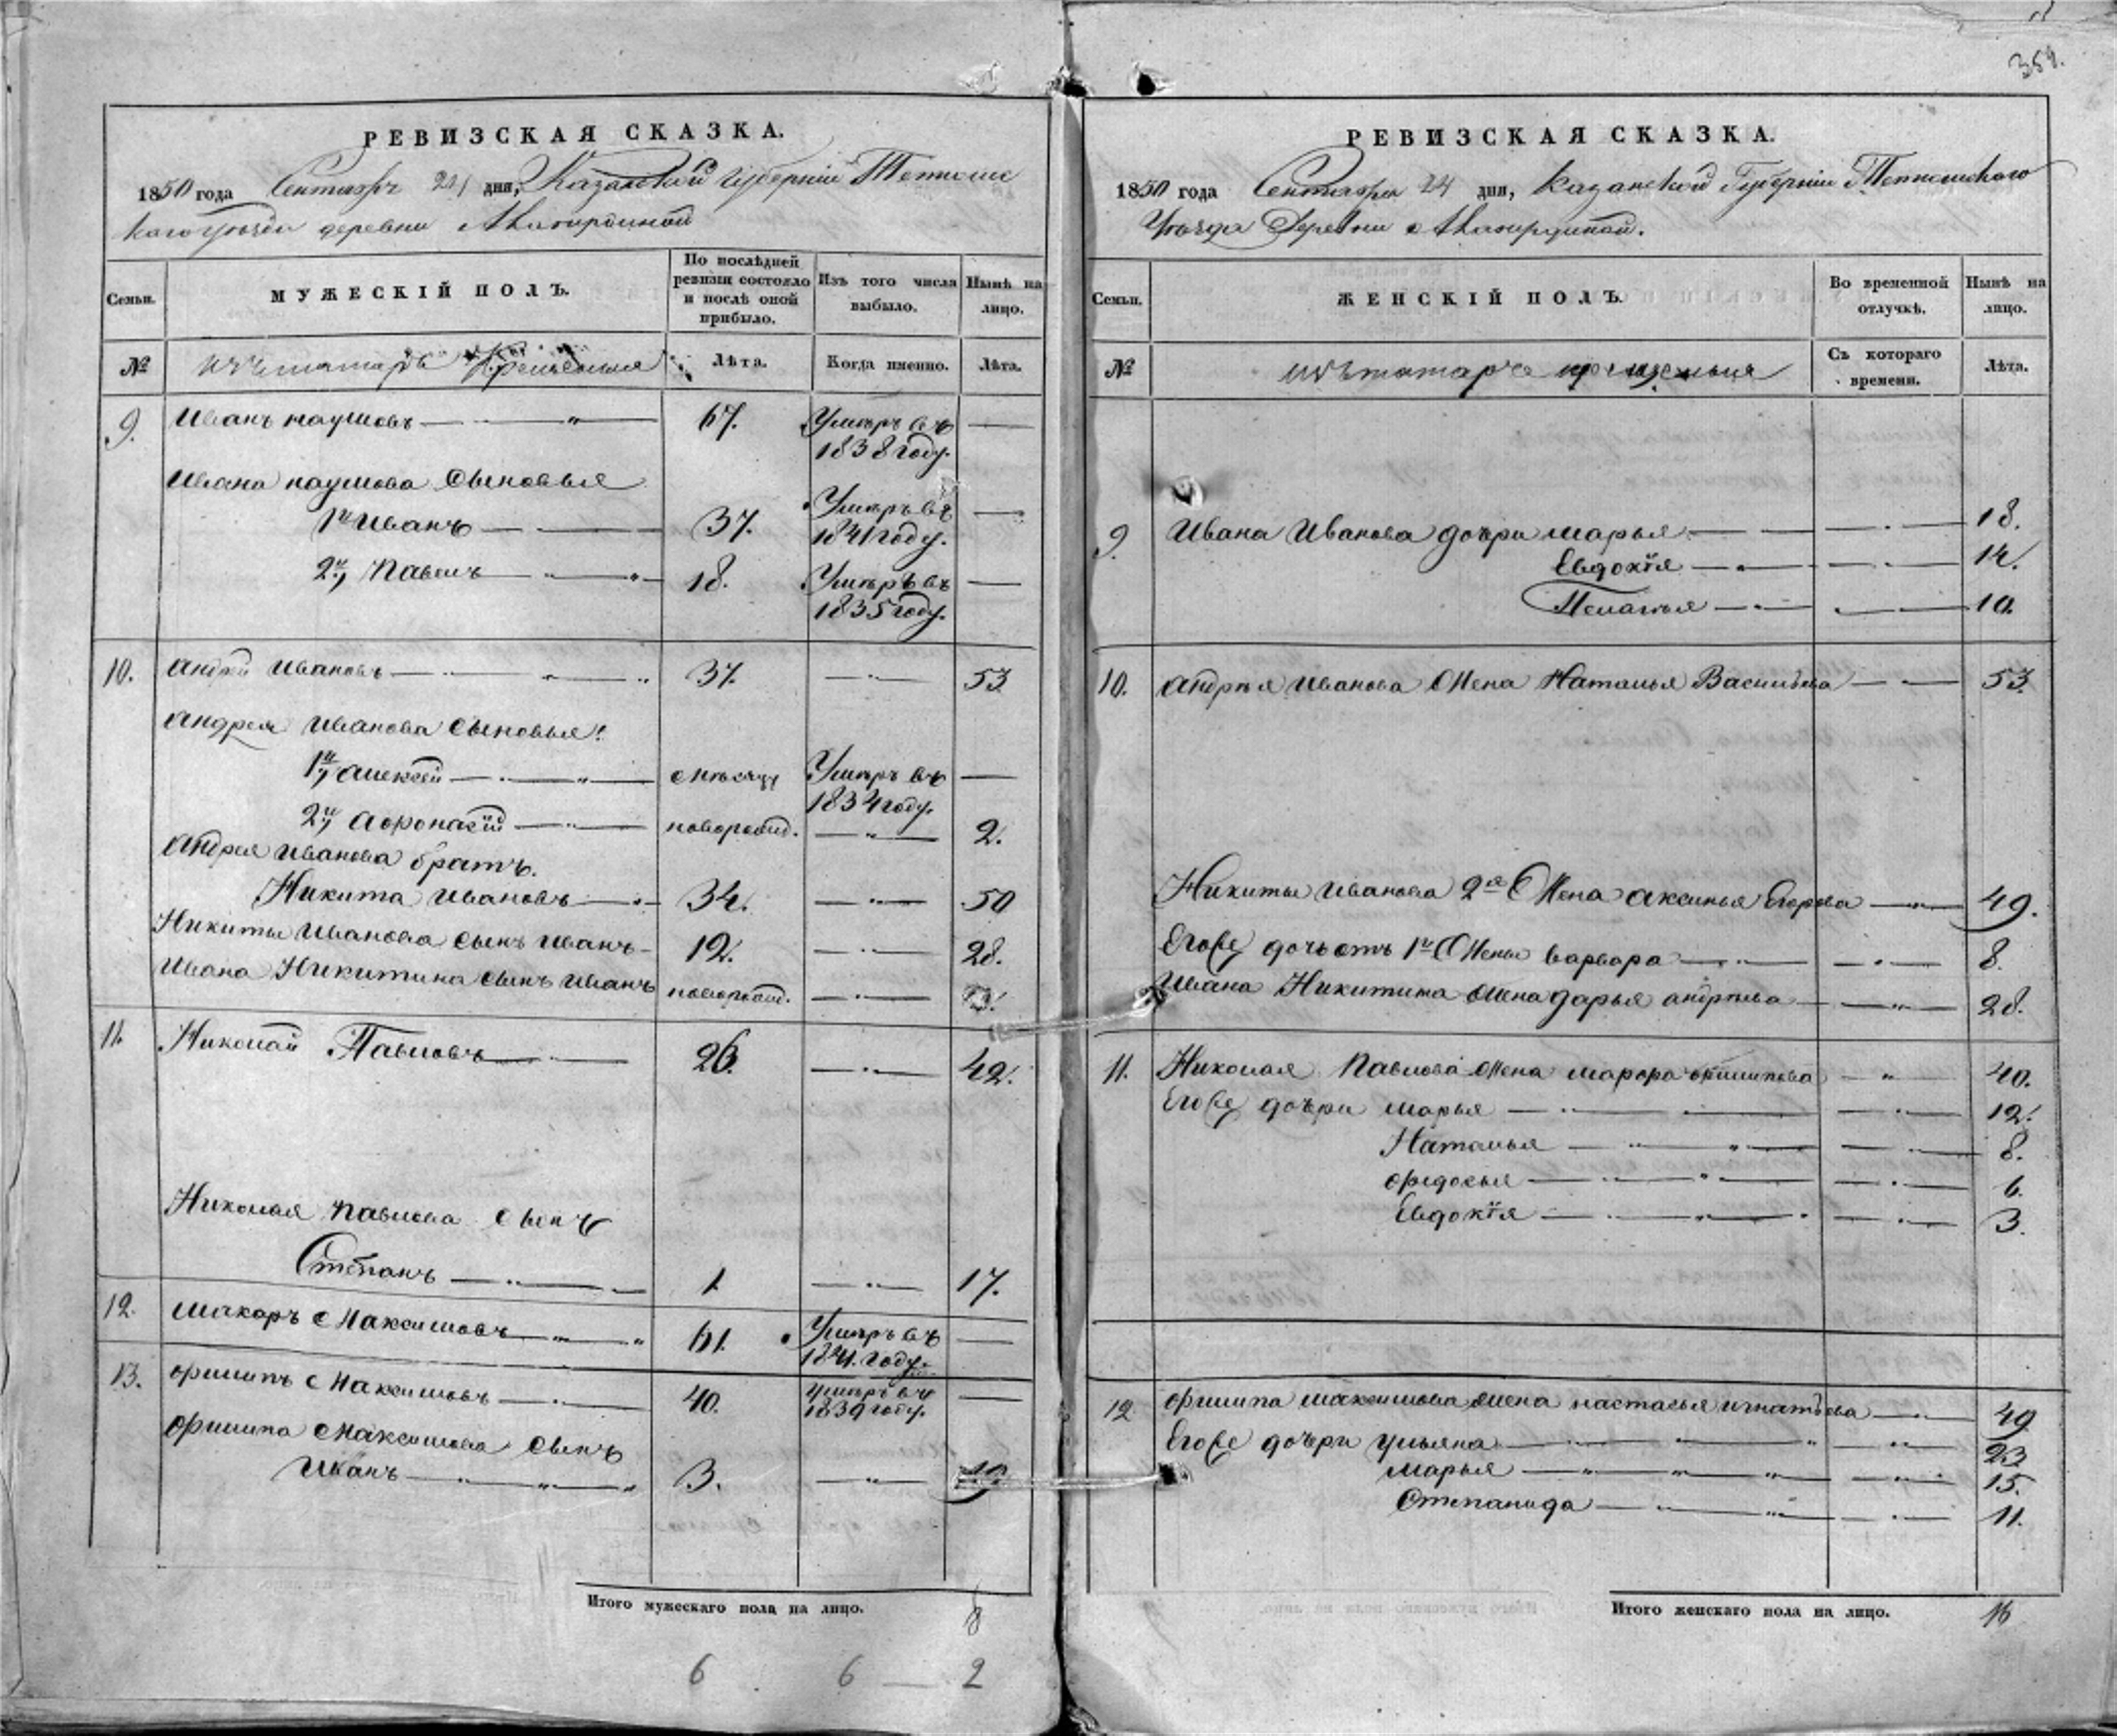 359.
РЕВИЗСКАЯ СКАЗКА.
1850 года Сентября 24 дня, Казанской губерніи Тетюш
каго уѣзда деревни
Семьи.
МУЖЕСКІЙ ПОЛЪ.
По послѣдней ревизіи состояло и послѣ оной прибыло.
Изъ того числа выбыло.
Нынѣ на лицо.
№
изъ татаръ крещеныя
Лѣта.
Когда именно.
Лѣта.
9. Иванъ Наумовъ — 67. Умеръ въ 1838 году. —
Ивана Наумова сыновья
1й Иванъ — 37. Умеръ въ 1841 году. —
2й Павелъ — 18. Умеръ въ 1835 году. —
10. Андрей Ивановъ — 37. — 53
Андрея Иванова сыновья:
1й Алексей — Умеръ въ 1834 году. —
2й Афонасій — поворожд. — 2.
Андрея Иванова братъ.
Никита Ивановъ — 34. — 50
Никиты Иванова сынъ Иванъ — 12. — 28.
Ивана Никитина сынъ Иванъ новорожд. —
11. Николай Павловъ — 26. — 42.
Николая Павлова сынъ
Степанъ — 1 — 17.
12. Макаръ Максимовъ — 61. Умеръ въ 1841. году. —
13. Филипъ Максимовъ — 40. умеръ въ 1839 году. —
Филипа Максимова сынъ
Иванъ — 3. — 19.
Итого мужескаго пола на лицо. 8
6 6 — 2
РЕВИЗСКАЯ СКАЗКА.
1850 года Сентября 24 дня, Казанской Губерніи Тетюшскаго
Уѣзда Деревни
Семьи.
ЖЕНСКІЙ ПОЛЪ.
Во временной отлучкѣ.
Нынѣ на лицо.
№
изъ татаръ крещеныя
Съ котораго времени.
Лѣта.
9 Ивана Иванова дочери Марья — 18.
Евдокія — 14.
Пелагья — 10.
10. Андрея Иванова жена Наталья Васильева — 53.
Никиты Иванова 2я жена Аксинья Егорова — 49.
Его же дочь отъ 1й жены Варвара — 8.
Ивана Никитина жена Дарья Андреева — 28.
11. Николая Павлова жена Марфа Филипова — 40.
Его же дочери Марья — 12.
Наталья — 8.
Федосья — 6.
Евдокія — 3.
12 Филипа Максимова жена Настасья Игнатьева — 49
Его же дочери Ульяна — 23
Марья — 15.
Степанида — 11.
Итого женскаго пола на лицо. 16